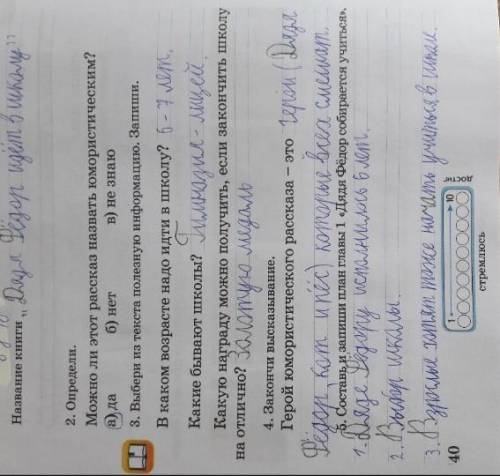 Название книги „Дядя Фёдор идёт в школу”
2. Определи.
Можно ли этот рассказ назвать юмористическим?
а) да б) нет в) не знаю
3. Выбери из текста полезную информацию. Запиши.
В каком возрасте надо идти в школу? 6-7 лет.
Какие бывают школы? Гимназия - лицей.
Какую награду можно получить, если закончить школу
на отлично? Золотую медаль
4. Закончи высказывание.
Герой юмористического рассказа – это герои (Дядя
Фёдор, кот и пёс) которые всех смешат.
5. Составь и запиши план главы 1 «Дядя Фёдор собирается учиться».
1. Дяде Фёдору исполнилось 6 лет.
2. Выбор школы.
3. Взрослые хотят тоже начать учиться в школе.
1 10
стремлюсь
достиг
40